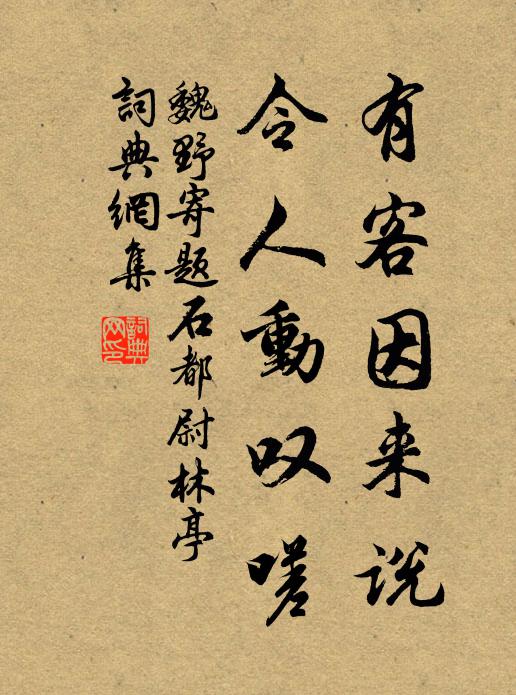 有客因来说
令人動叹嗟
魏野寄题石都尉林亭
詞典網集
詞典网印